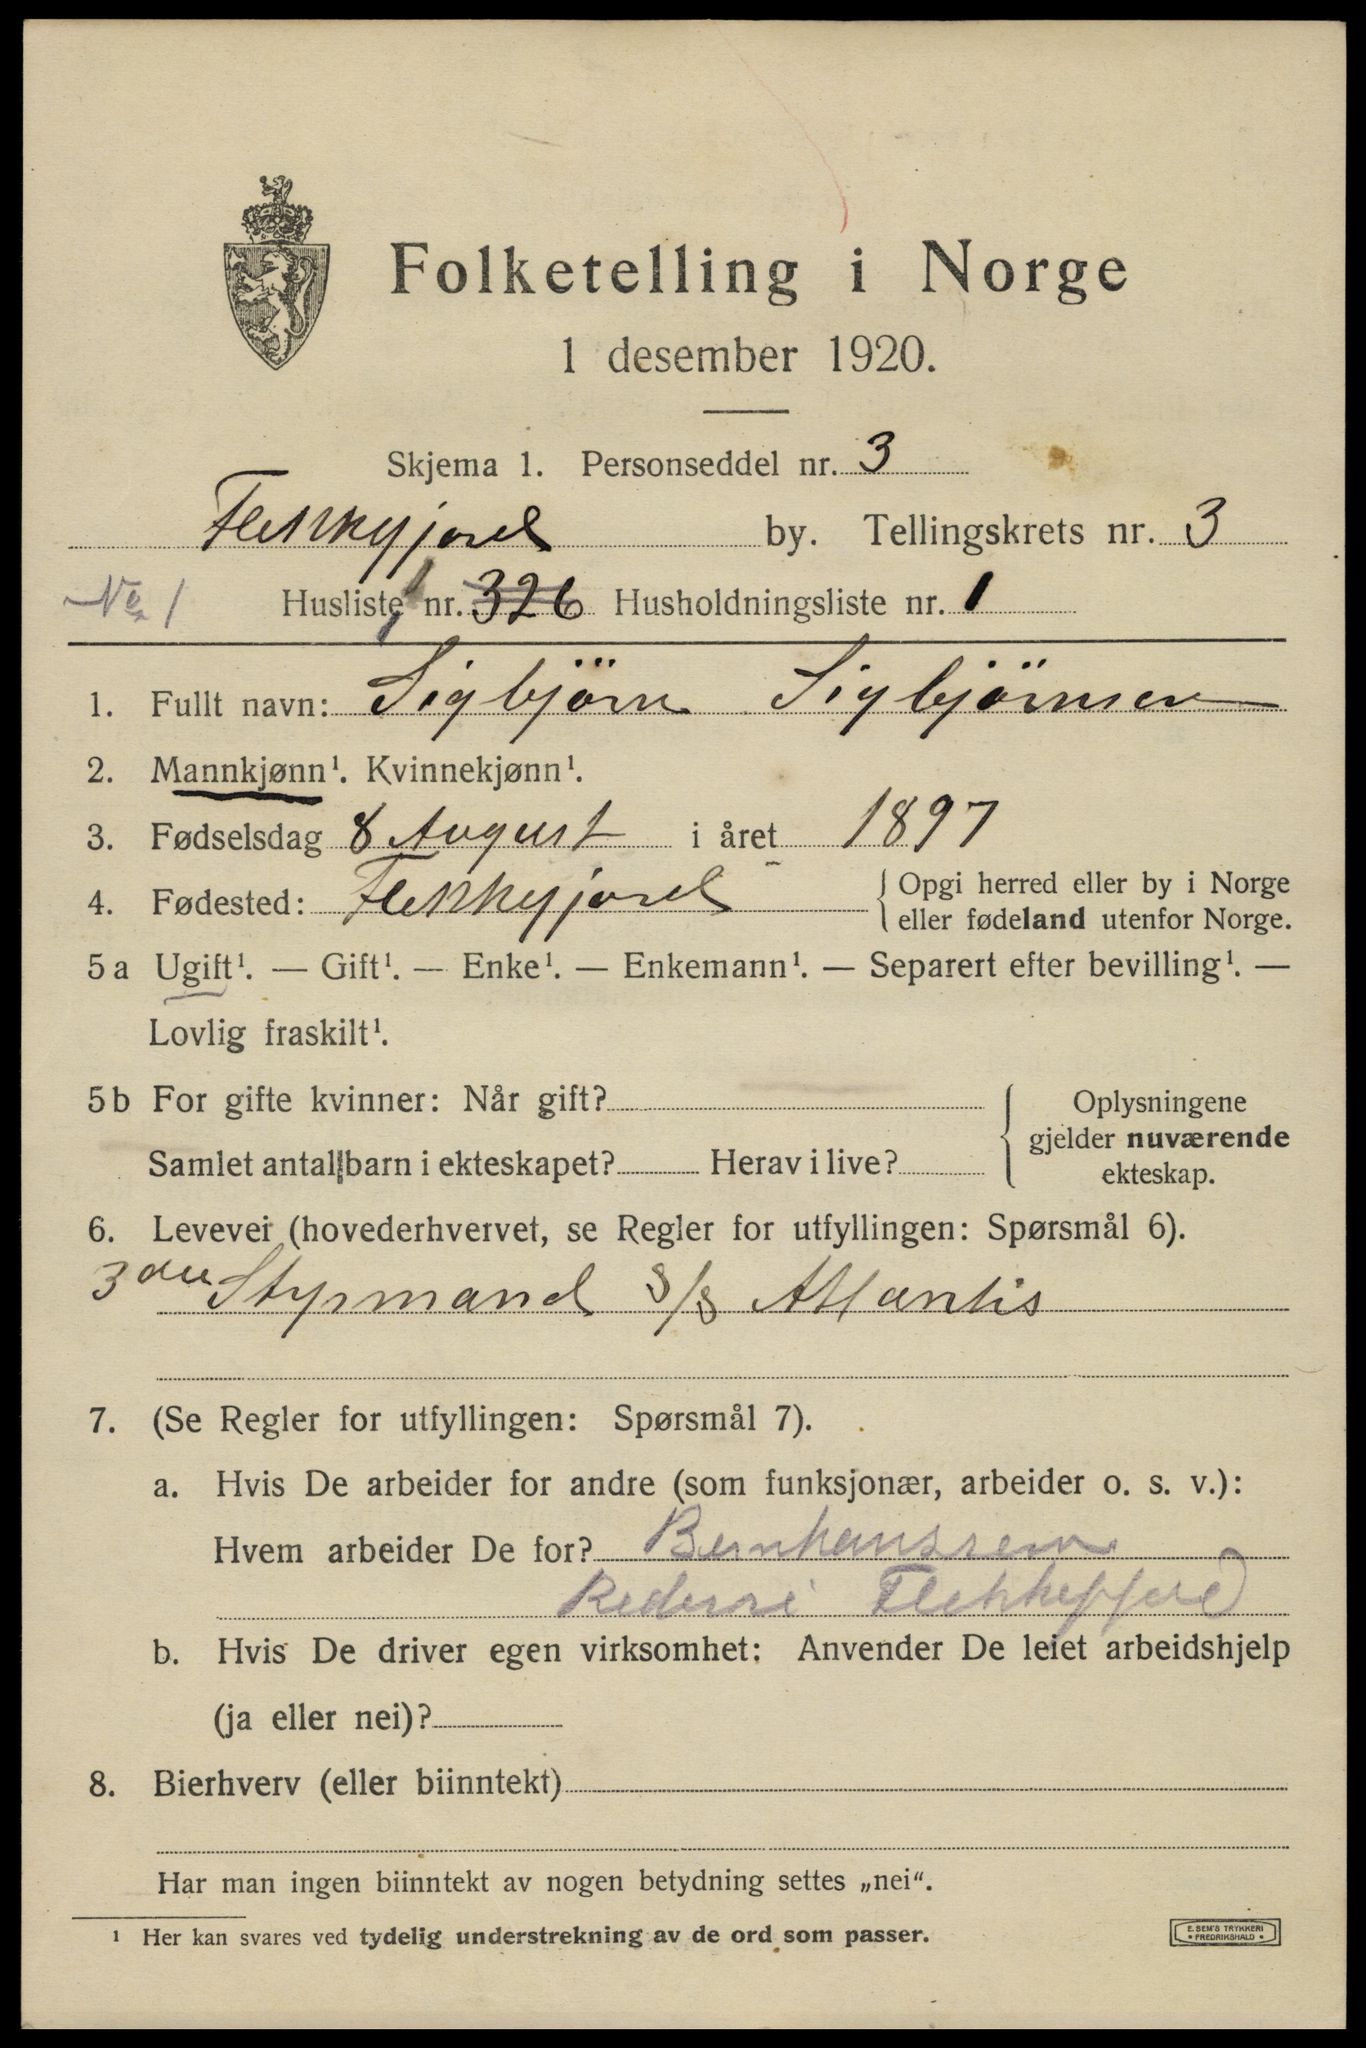 Folketelling i Norge
1 desember 1920.
Skjema 1. Personseddel nr. 3
Flekkefjord by. Tellingskrets nr. 3
No 1 Husliste nr. 326 Husholdningsliste nr. 1
1. Fullt navn: Sigbjörn Sigbjörnsen
2. Mannkjønn¹. Kvinnekjønn¹.
3. Fødselsdag 8 August i året 1897
4. Fødested: Flekkefjord { Opgi herred eller by i Norge
eller fødeland utenfor Norge.
5a Ugift¹. — Gift¹. — Enke¹. — Enkemann¹. — Separert efter bevilling¹. —
Lovlig fraskilt¹.
5b For gifte kvinner: Når gift?
Samlet antal barn i ekteskapet? Herav i live?
{ Oplysningene
gjelder nuværende
ekteskap.
6. Levevei (hovederhvervet, se Regler for utfyllingen: Spørsmål 6).
3die Styrmand S/S Atlantis
7. (Se Regler for utfyllingen: Spørsmål 7).
a. Hvis De arbeider for andre (som funksjonær, arbeider o. s. v.):
Hvem arbeider De for? Bernhanssen
Rederi Flekkefjord
b. Hvis De driver egen virksomhet: Anvender De leiet arbeidshjelp
(ja eller nei)?
8. Bierhverv (eller biinntekt)
Har man ingen biinntekt av nogen betydning settes „nei“.
¹ Her kan svares ved tydelig understrekning av de ord som passer.
E. SEM'S TRYKKERI
• FREDRIKSHALD •